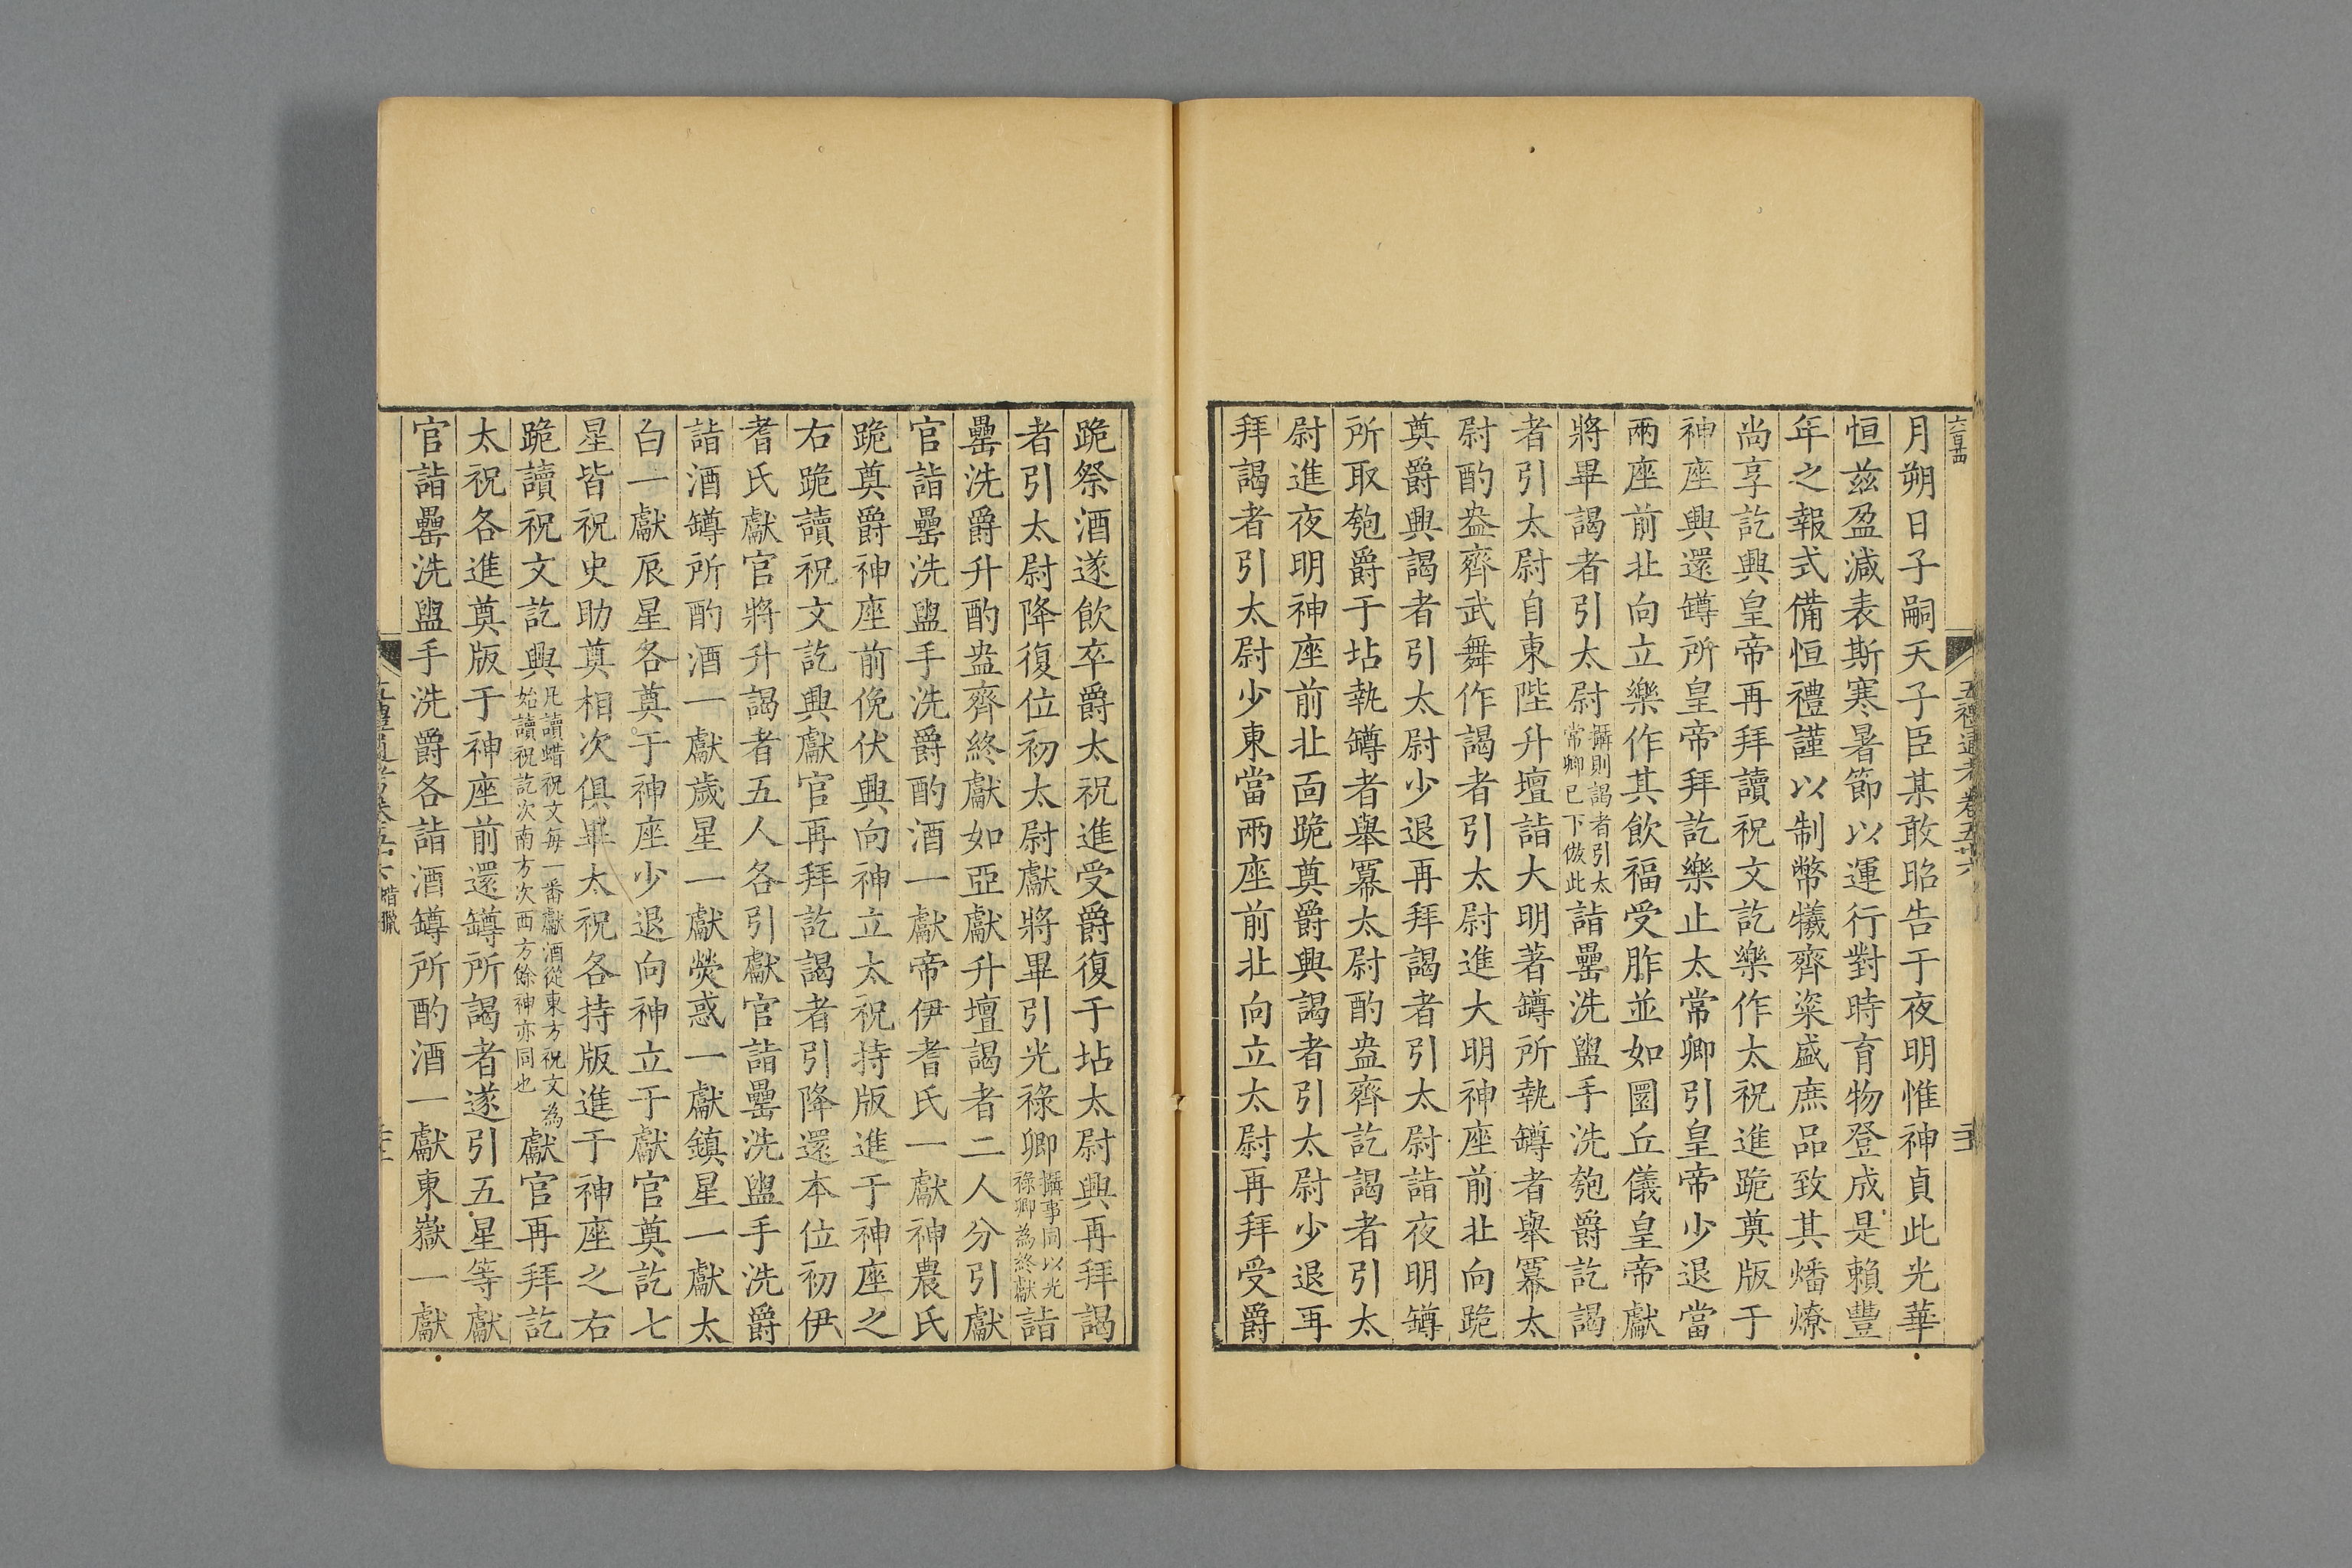 月朔日子嗣天子臣某敢昭告于夜明惟神貞此光華
恒兹盈減表斯寒暑節以運行對時育物登成是賴豐
年之報式備恒禮謹以制幣犧齊粢盛庶品致其燔燎
尚享訖興皇帝再拜讀祝文訖樂作太祝進跪奠版于
神座興還罇所皇帝拜訖樂止太常卿引皇帝少退當
兩座前北向立樂作其飲福受胙並如圜丘儀皇帝獻
將畢謁者引太尉攝則謁者引太常卿已下倣此詣罍洗盥手洗匏爵訖謁
者引太尉自東陛升壇詣大明著罇所執罇者舉冪太
尉酌盎齊武舞作謁者引太尉進大明神座前北向跪
奠爵興謁者引太尉少退再拜謁者引太尉詣夜明罇
所取匏爵于坫執罇者舉冪太尉酌盎齊訖謁者引太
尉進夜明神座前北面跪奠爵興謁者引太尉少退再
拜謁者引太尉少東當兩座前北向立太尉再拜受爵
跪祭酒遂飲卒爵太祝進受爵復于坫太尉興再拜謁
者引太尉降復位初太尉獻將畢引光祿卿攝事同以光祿卿為終獻詣
罍洗爵升酌盎齊終獻如亞獻升壇謁者二人分引獻
官詣罍洗盥手洗爵酌酒一獻帝伊耆氏一獻神農氏
跪奠爵神座前俛伏興向神立太祝持版進于神座之
右跪讀祝文訖興獻官再拜訖謁者引降還本位初伊
耆氏獻官將升謁者五人各引獻官詣罍洗盥手洗爵
詣酒罇所酌酒一獻歲星一獻熒惑一獻鎮星一獻太
白一獻辰星各奠于神座少退向神立于獻官奠訖七
星皆祝史助奠相次俱畢太祝各持版進于神座之右
跪讀祝文訖興凡讀蜡祝文每一番獻酒從東方祝文為始讀祝訖次南方次西方餘神亦同也獻官再拜訖
太祝各進奠版于神座前還罇所謁者遂引五星等獻
官詣罍洗盥手洗爵各詣酒罇所酌酒一獻東嶽一獻